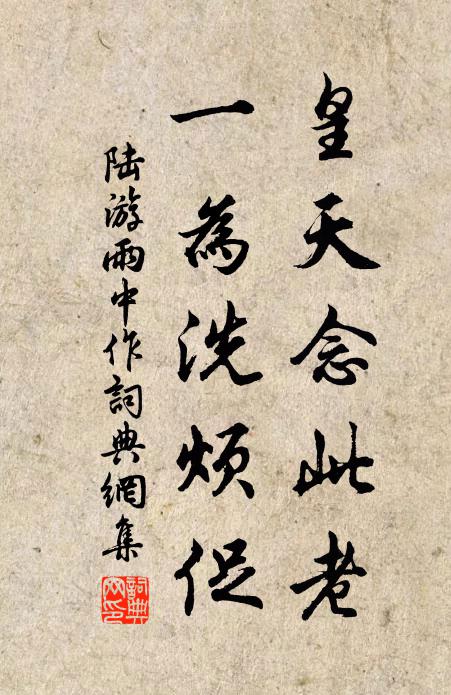 皇天念此老
一為洗煩促
陸游雨中作詞典網集
詞典網印